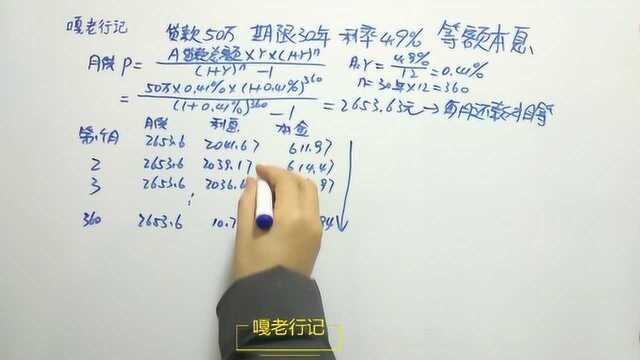 嘎老行记
贷款50万 期限30年 利率4.9% 等额本息
月供 P = A贷款总额×Y×(1+Y)^n / (1+Y)^n - 1
A.Y = 4.9% / 12 = 0.41%
n = 30年×12 = 360
= 50万×0.41%×(1+0.41%)^360 / (1+0.41%)^360 - 1 = 2653.63元→每月还款相等
月供 利息 本金
第1个月 2653.6 2041.67 611.97
2 2653.6 2039.17 614.47
3 2653.6 2036.
⋮
360 2653.6 10.
嘎老行记